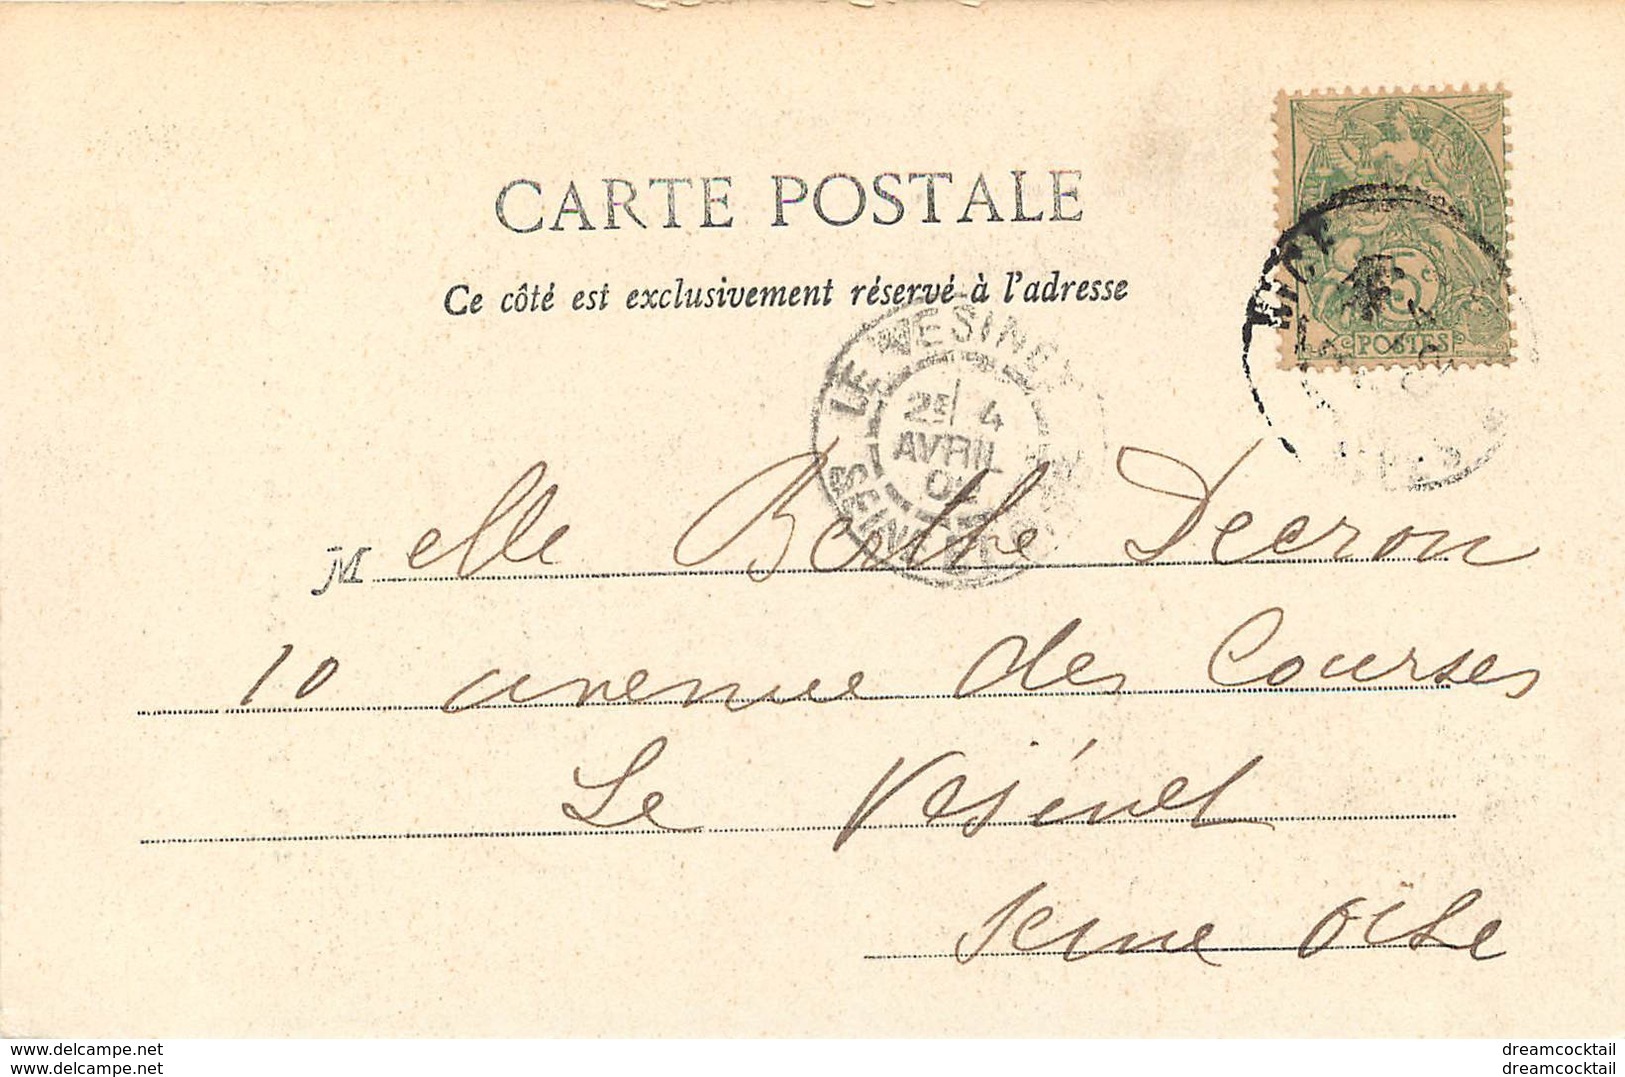 CARTE POSTALE
Ce côté est exclusivement réservé à l'adresse
POSTES
5c
LE VESINET
4
AVRIL
Melle Berthe Decron
10 avenue des Courses
Le Vésinet
Seine Oise
www.delcampe.net
www.delcampe.net
dreamcocktail
dreamcocktail